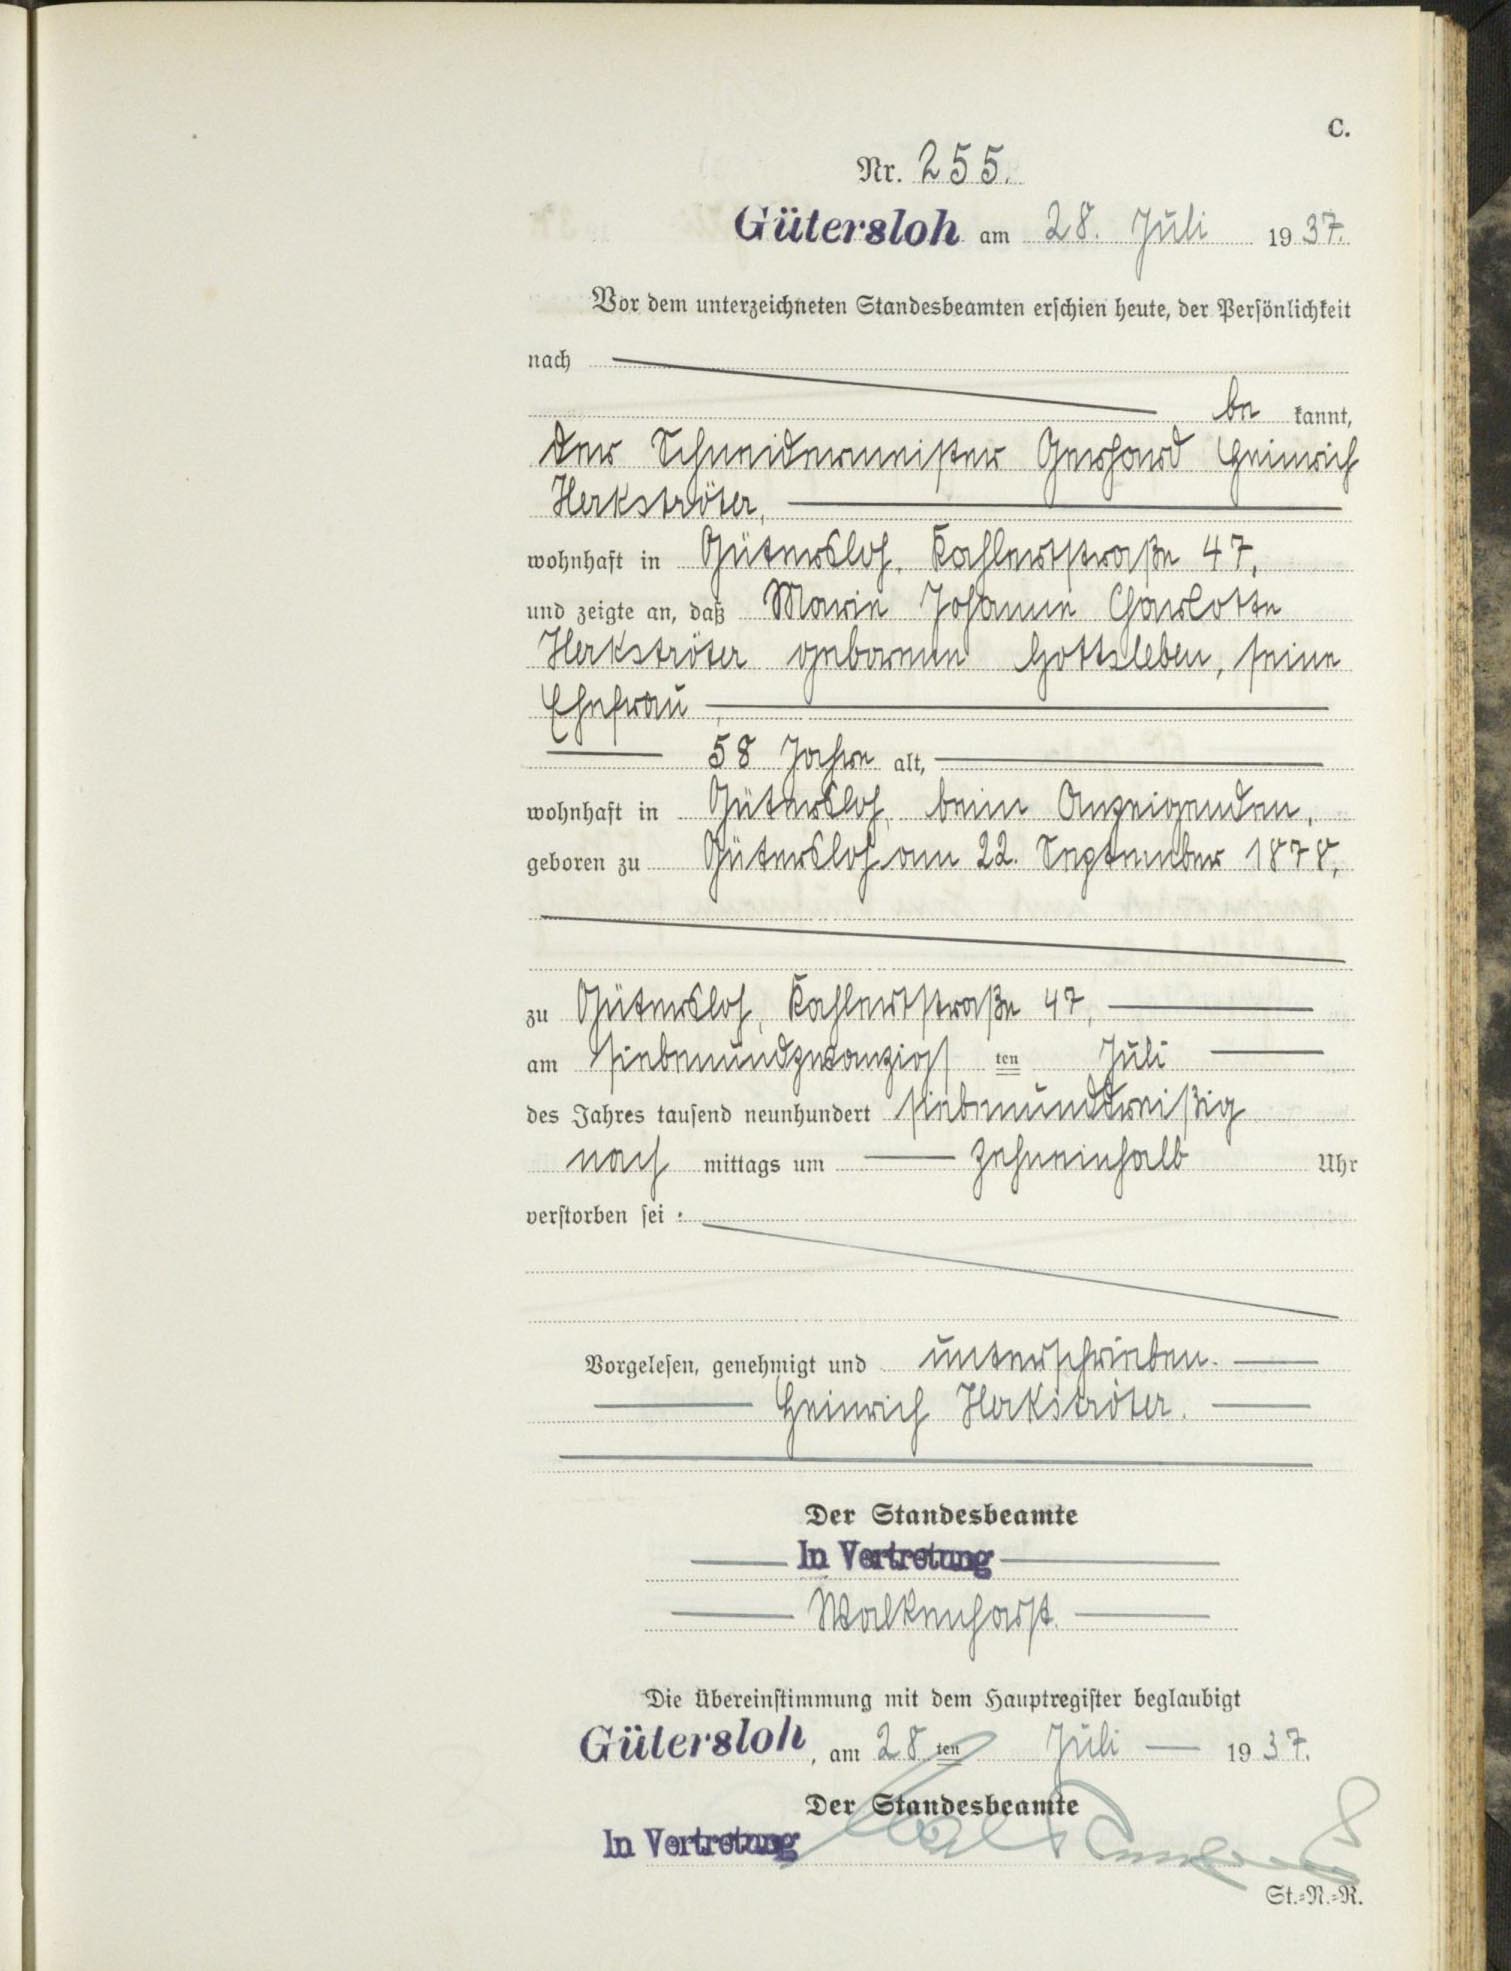 C.
Nr. 255.
Gütersloh am 28. Juli 1937.
Vor dem unterzeichneten Standesbeamten erschien heute, der Persönlichkeit
nach
be kannt,
der Schneidermeister Gerhard Heinrich
Herkströter,
wohnhaft in Gütersloh, Kahlertstraße 47,
und zeigte an, daß Marie Johanne Charlotte
Herkströter geborene Gottsleben, seine
Ehefrau,
58 Jahre alt,
wohnhaft in Gütersloh, beim Anzeigenden,
geboren zu Gütersloh am 22. September 1878,
zu Gütersloh, Kahlertstraße 47,
am siebenundzwanzigs ten Juli
des Jahres tausend neunhundert siebenunddreißig
nach mittags um zehneinhalb Uhr
verstorben sei.
Vorgelesen, genehmigt und unterschrieben.
Heinrich Herkströter.
Der Standesbeamte
In Vertretung
Walkenhorst.
Die Übereinstimmung mit dem Hauptregister beglaubigt
Gütersloh, am 28 ten Juli 1937.
Der Standesbeamte
In Vertretung Walkenhorst
St.=N.=R.